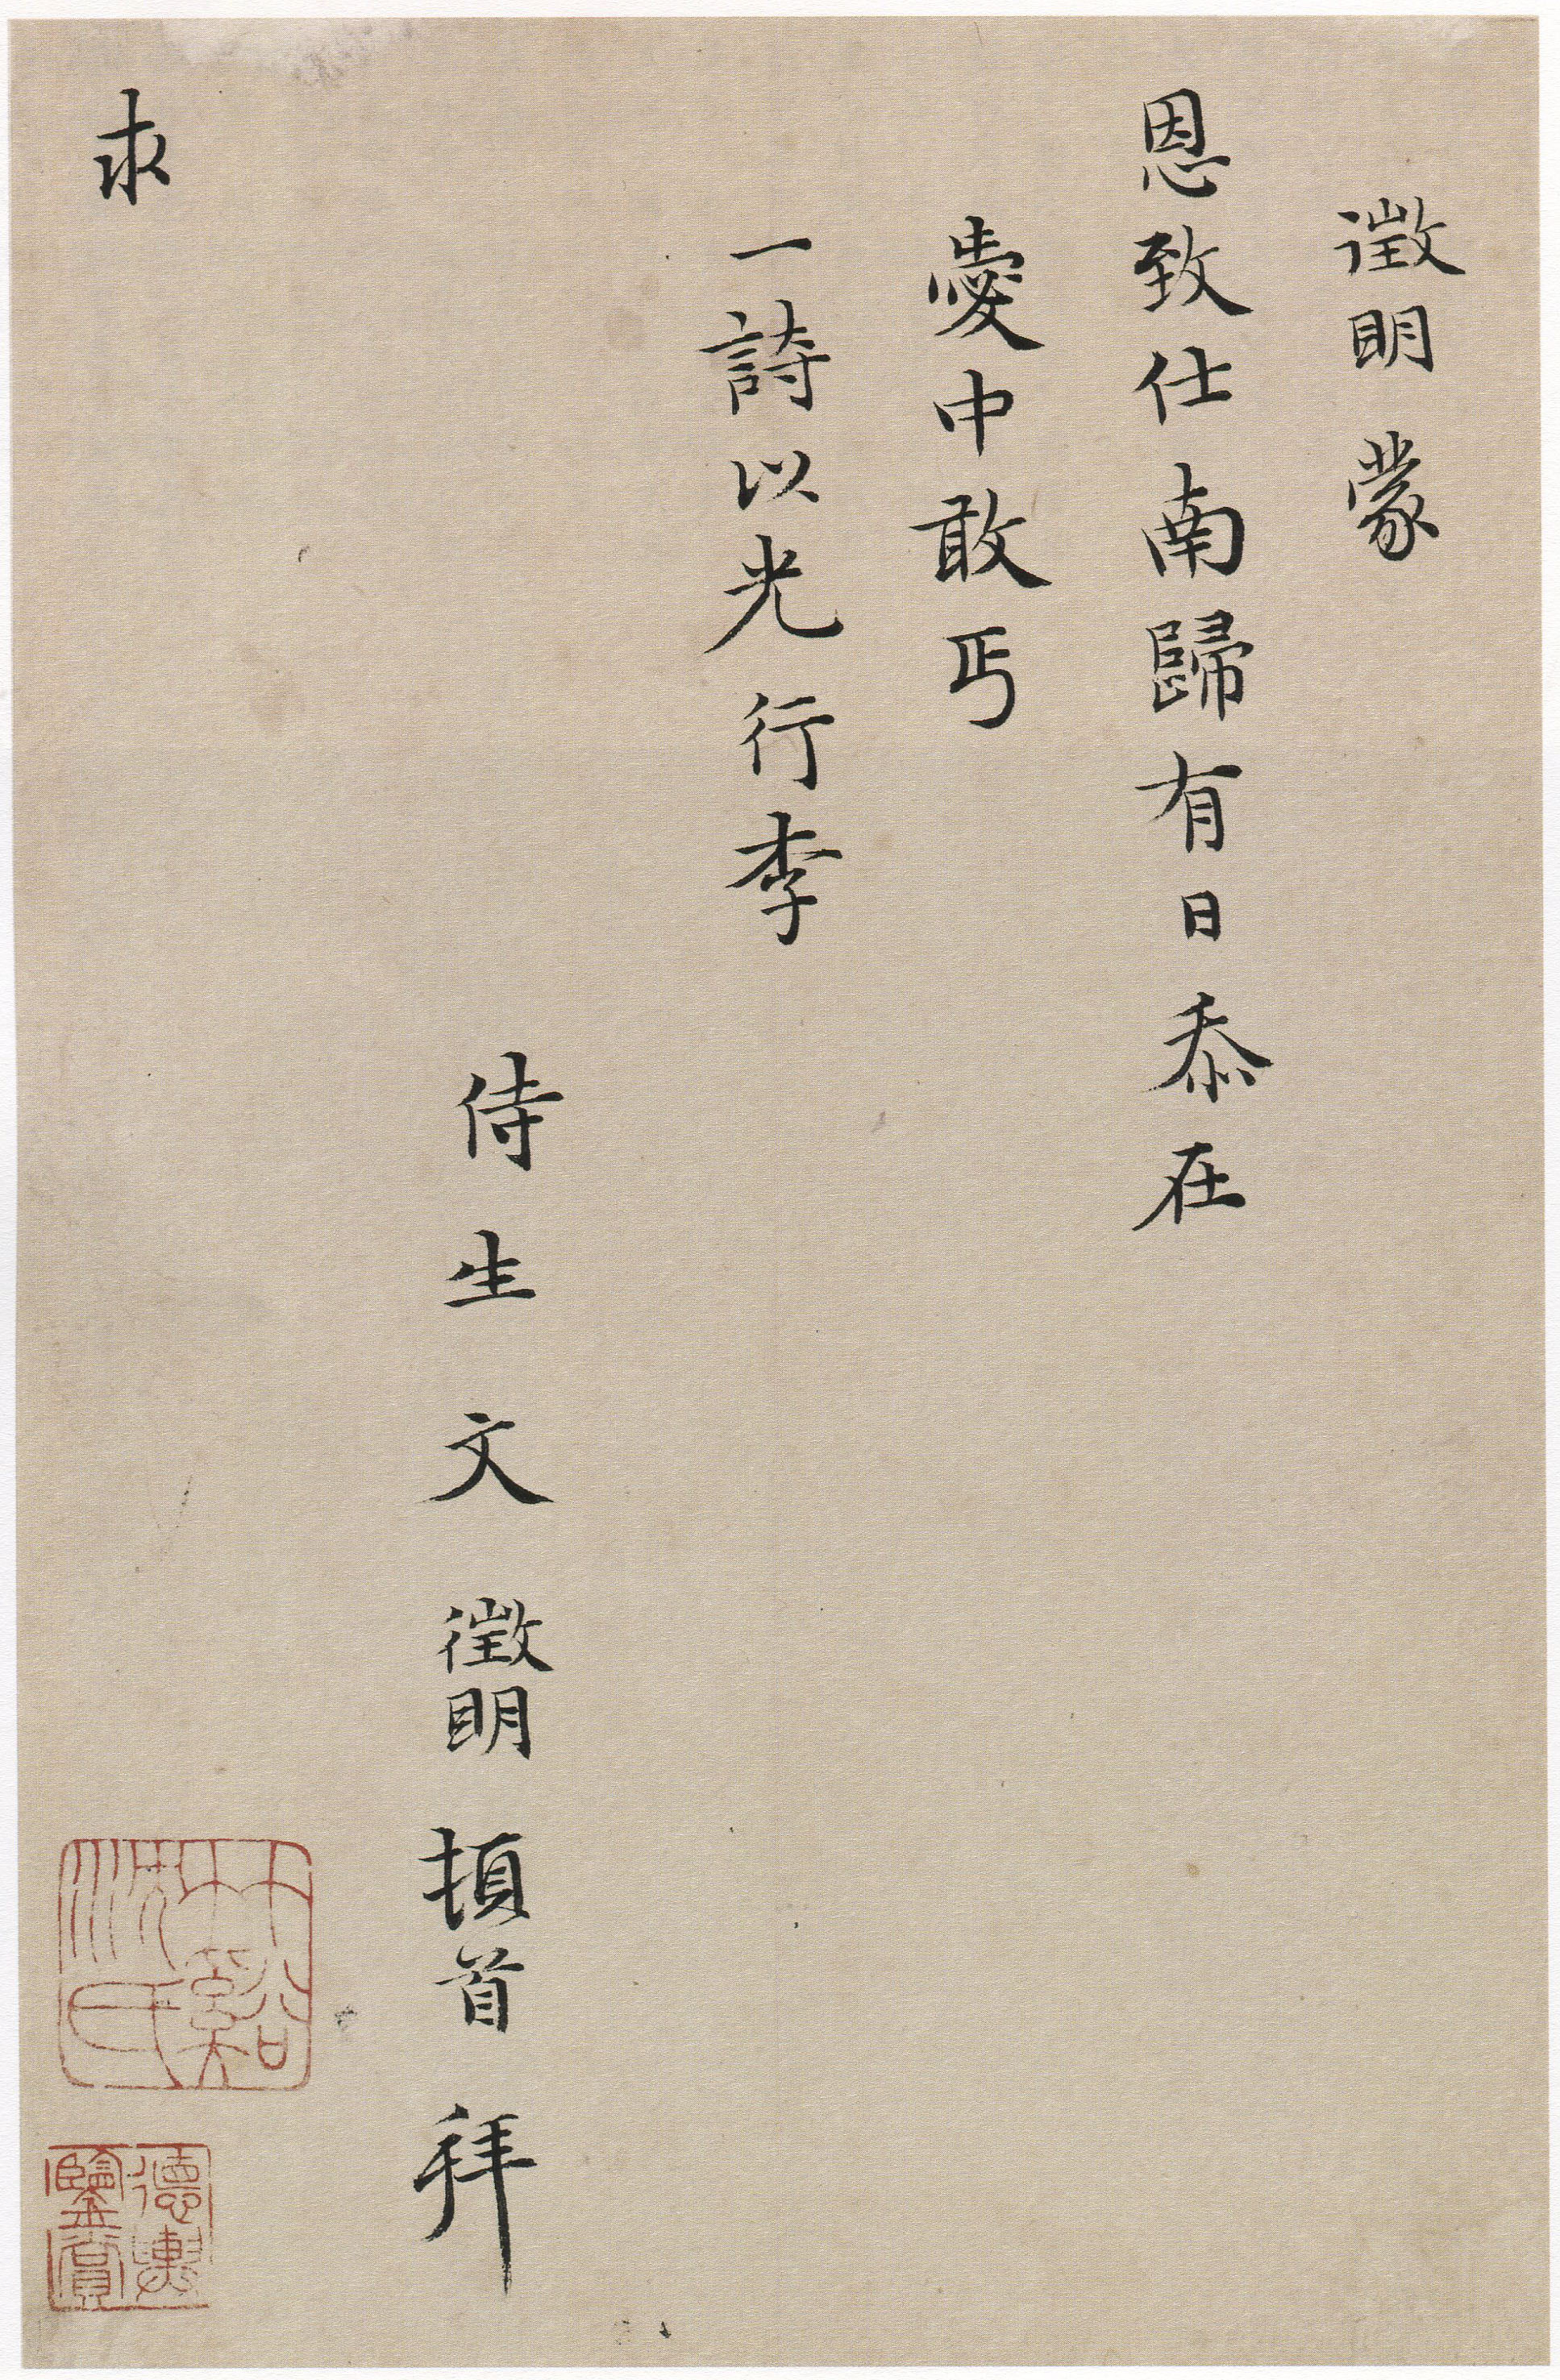 徵明蒙
恩致仕南歸有日忝在
愛中敢丐
一詩以光行李
侍生文徵明頓首拜
求
竹谿
沈氏
德輿
鑒賞